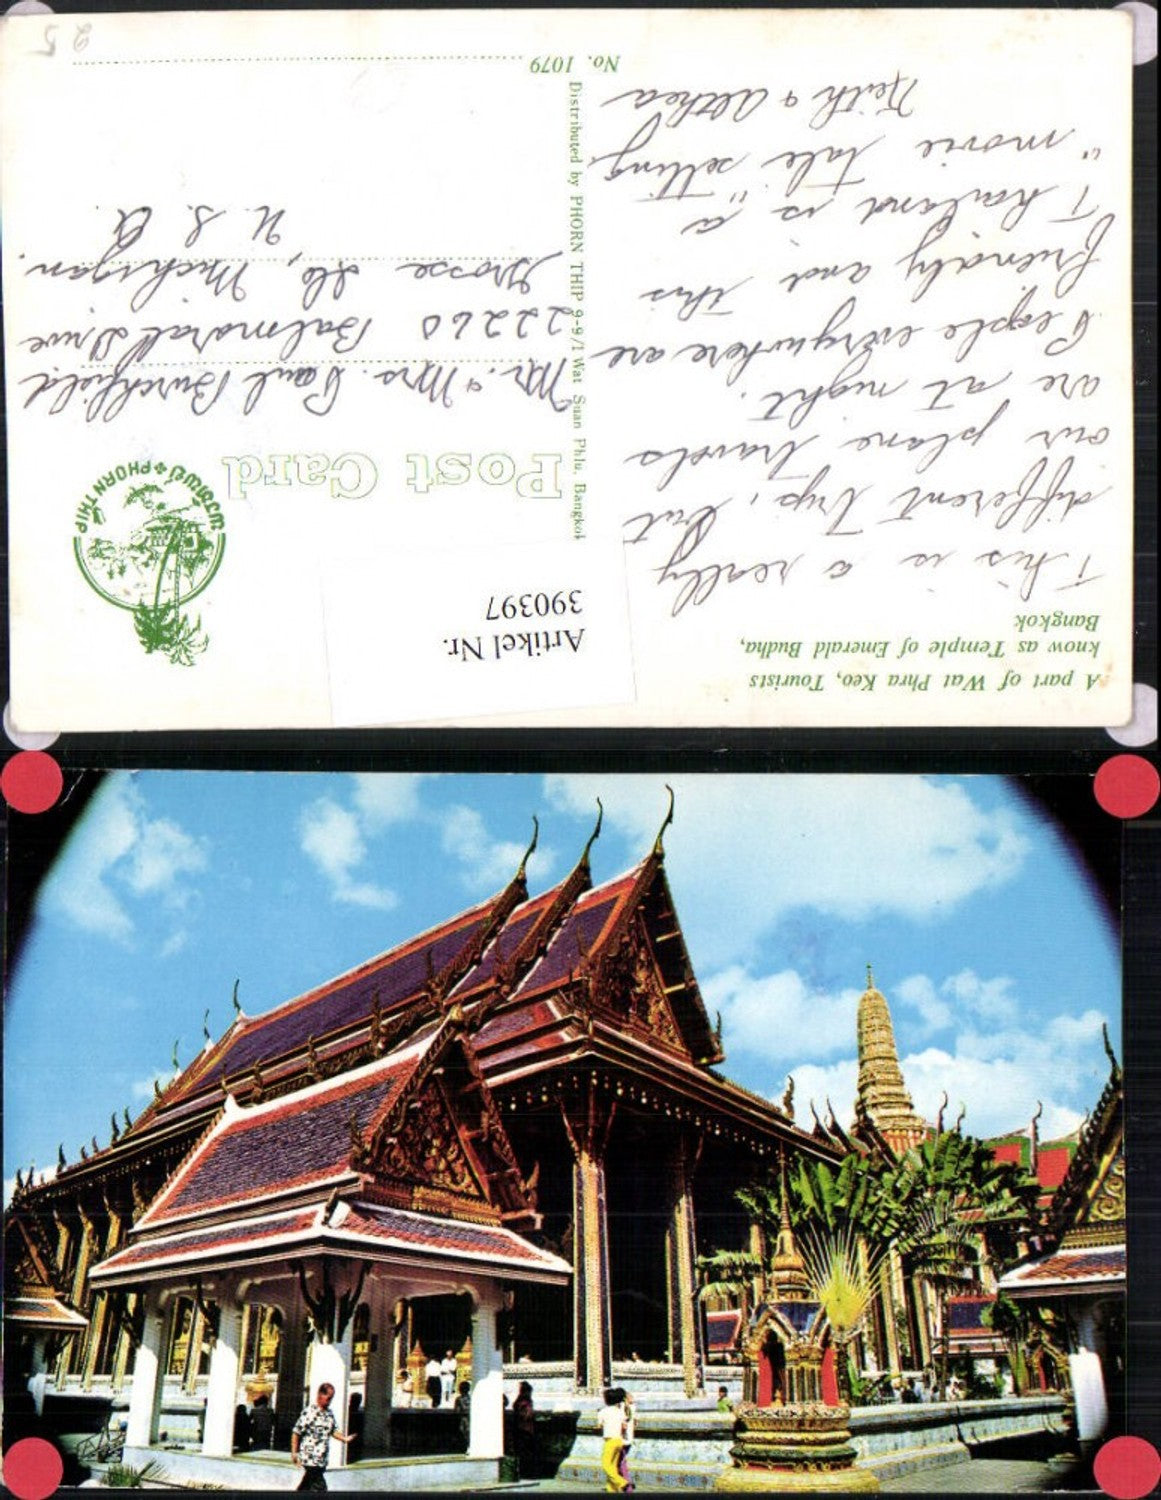 A part of Wat Phra Keo, Tourists
know as Temple of Emerald Budha,
Bangkok
This is a really
different trip, but
our plane travels
are at night.
People everywhere are
friendly and this
Thailand is "a
"movie tale setting.
Keith & Althea
Artikel Nr.
390397
พรทิพย์ PHORN THIP
Post Card
Mr. & Mrs. Paul Burchfield
22260 Balmoral Drive
Grosse Ile, Michigan.
U. S. A
Distributed by PHORN THIP 9-9/1 Wat Suan Phlu, Bangkok
No. 1079
25